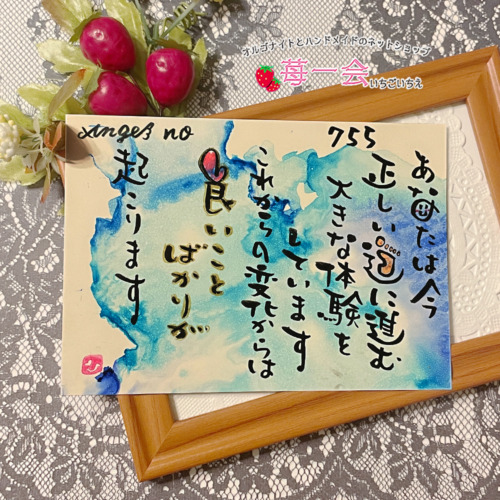 オルゴナイトとハンドメイドのネットショップ
苺一会
いちごいちえ
Angel no
755
あなたは今
正しい道に進む
大きな体験を
しています
これからの変化からは
良いこと
ばかりが
起こります